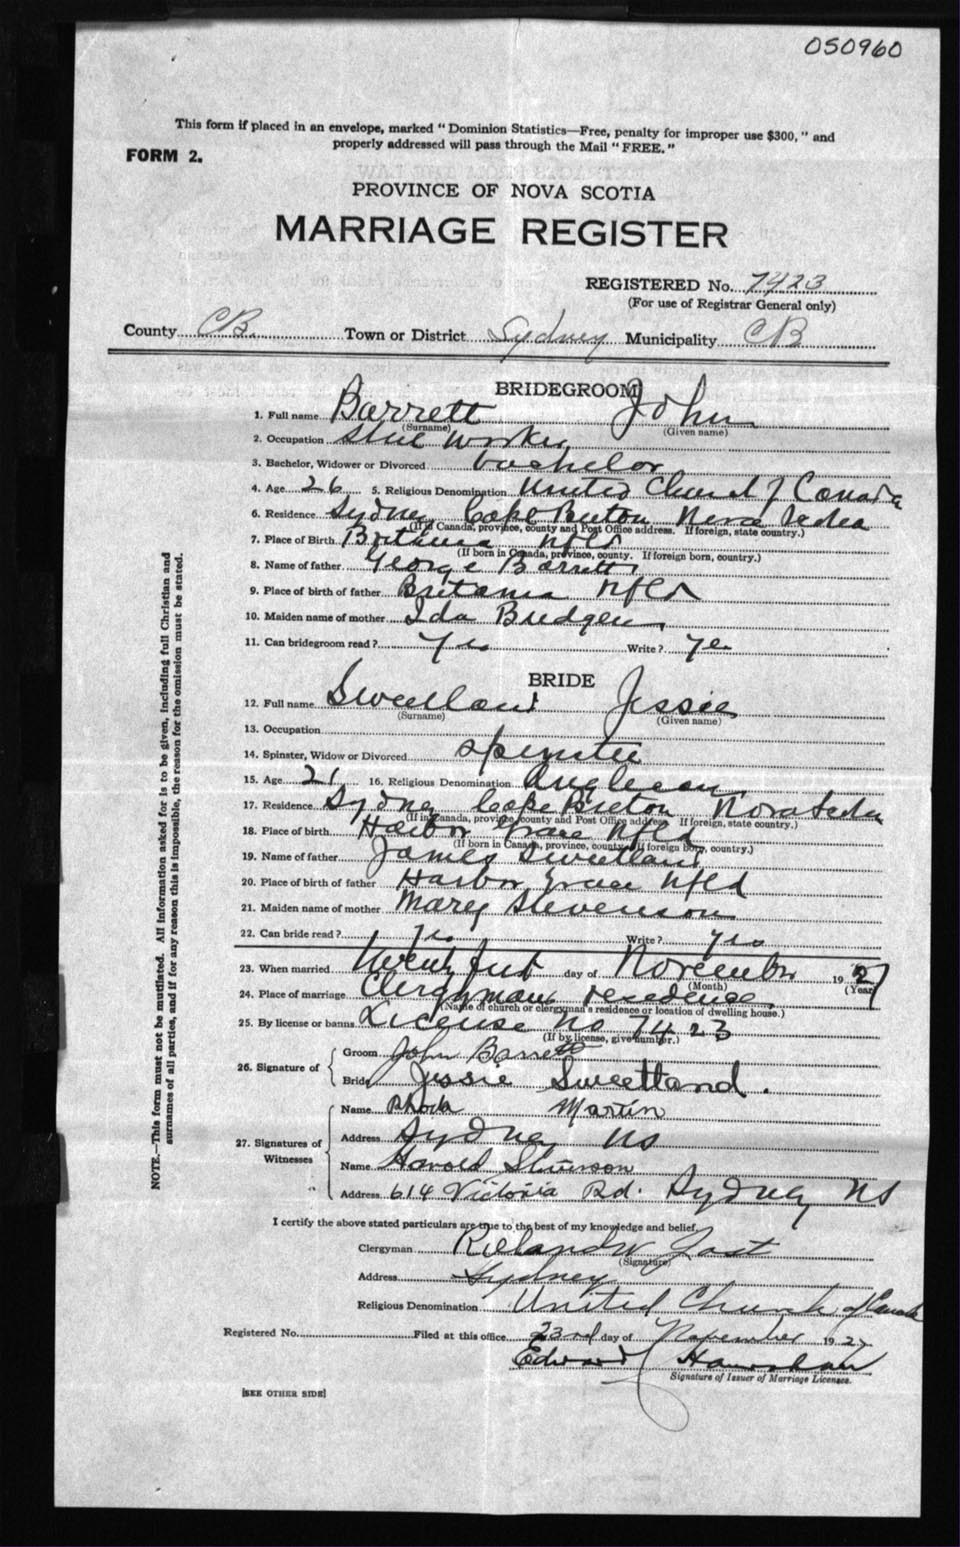 050960
This form if placed in an envelope, marked "Dominion Statistics—Free, penalty for improper use $300," and
properly addressed will pass through the Mail "FREE."
FORM 2.
PROVINCE OF NOVA SCOTIA
MARRIAGE REGISTER
REGISTERED No. 7423
(For use of Registrar General only)
County C B. Town or District Sydney Municipality C B
BRIDEGROOM
1. Full name Barrett John
(Surname) (Given name)
2. Occupation Steel Worker
3. Bachelor, Widower or Divorced bachelor
4. Age 26 5. Religious Denomination United Church of Canada
6. Residence Sydney Cape Breton Nova Scotia
(If in Canada, province, county and Post Office address. If foreign, state country.)
7. Place of Birth Britania Nfld
(If born in Canada, province, county. If foreign born, country.)
8. Name of father George Barrett
9. Place of birth of father Britania Nfld
10. Maiden name of mother Ida Budgen
11. Can bridegroom read? Yes Write? Yes
BRIDE
12. Full name Sweetland Jessie
(Surname) (Given name)
13. Occupation
14. Spinster, Widow or Divorced spinster
15. Age 21 16. Religious Denomination Anglican
17. Residence Sydney Cape Breton Nova Scotia
(If in Canada, province, county and Post Office address. If foreign, state country.)
18. Place of birth Harbor Grace Nfld
(If born in Canada, province, county. If foreign born, country.)
19. Name of father James Sweetland
20. Place of birth of father Harbor Grace Nfld
21. Maiden name of mother Mary Stevenson
22. Can bride read? Yes Write? yes
23. When married Twenty first day of November 1927
(Month) (Year)
24. Place of marriage Clergymans residence
(Name of church or clergyman's residence or location of dwelling house.)
25. By license or banns License No 7423
(If by license, give number.)
26. Signature of Groom John Barrett
Bride Jessie Sweetland.
27. Signatures of Witnesses
Name Rhoda Martin
Address Sydney NS
Name Harold Stevenson
Address 614 Victoria Rd. Sydney NS
I certify the above stated particulars are true to the best of my knowledge and belief,
Clergyman
(Signature)
Address Sydney
Religious Denomination United Church of Canada
Registered No. Filed at this office 23rd day of November 1927
Edward
Signature of Issuer of Marriage Licenses.
[SEE OTHER SIDE]
NOTE.—This form must not be mutilated. All information asked for is to be given, including full Christian and
surnames of all parties, and if for any reason this is impossible, the reason for the omission must be stated.